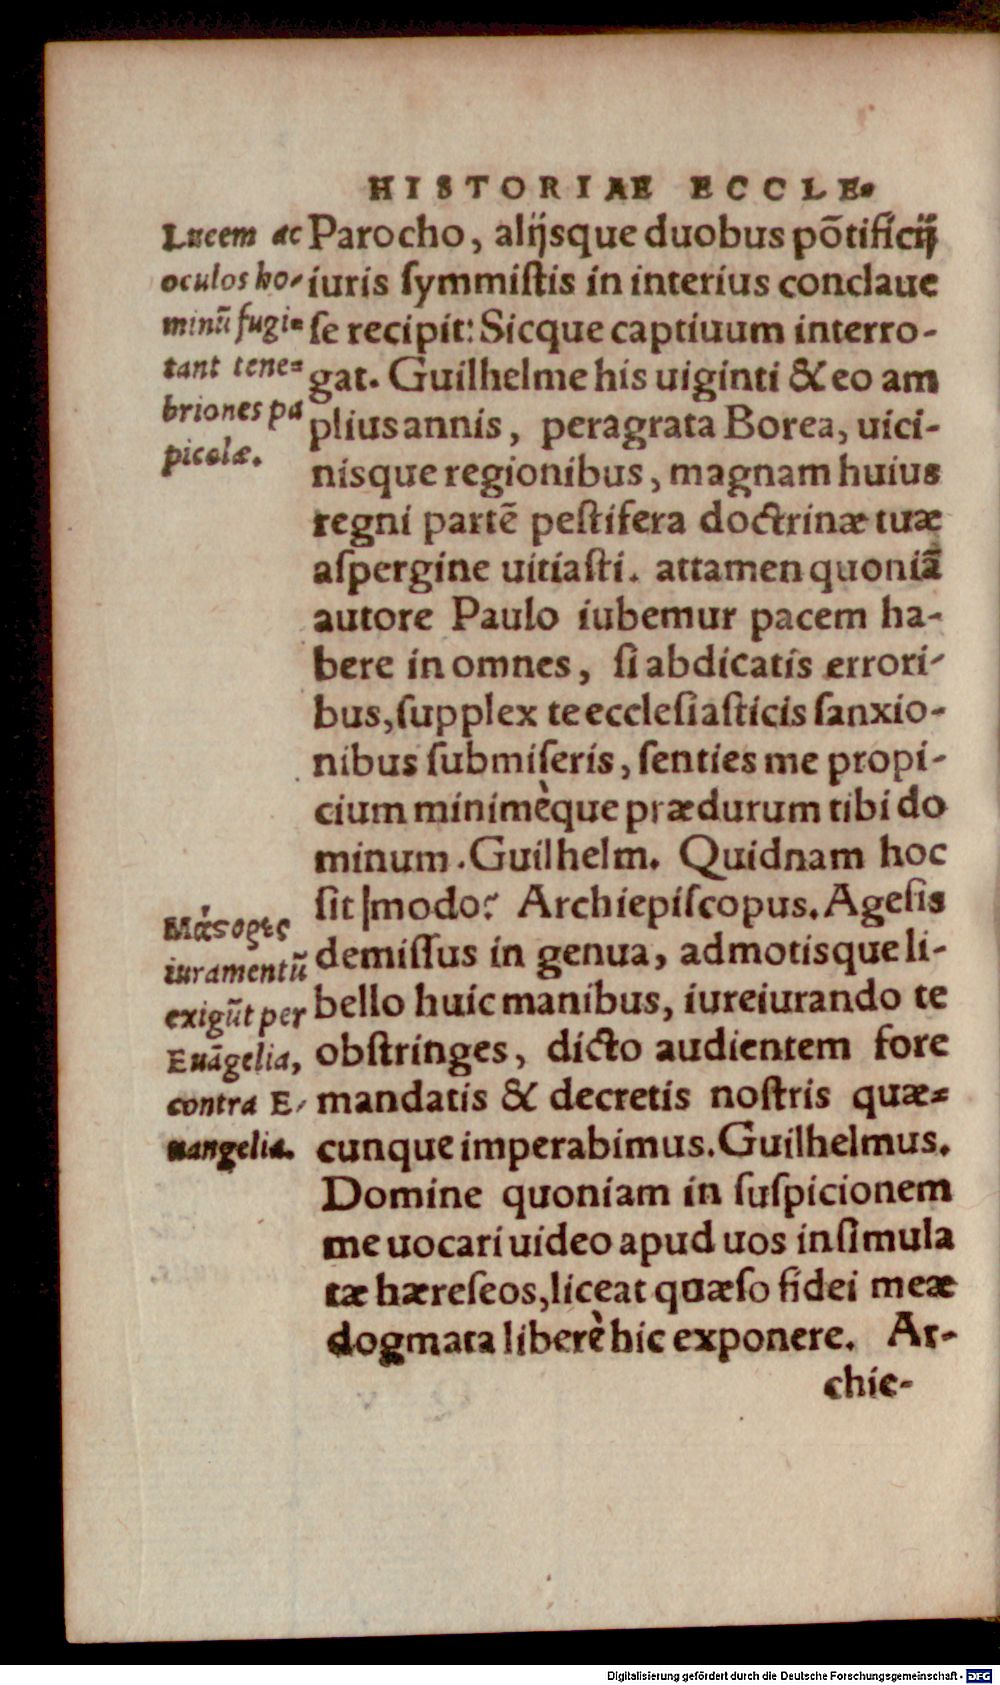 HISTORIAE ECCLE-
Lucem ac
oculos ho-
minũ fugi-
tant tene-
briones pa
picolæ.
Parocho, alijsque duobus põtificij
iuris ſymmiſtis in interius conclaue
ſe recipit: Sicque captiuum interro-
gat. Guilhelme his uiginti & eo am
plius annis, peragrata Borea, uici-
nisque regionibus, magnam huius
regni partẽ peſtifera doctrinæ tuæ
aſpergine uitiaſti. attamen quoniã
autore Paulo iubemur pacem ha-
bere in omnes, ſi abdicatis errori-
bus, ſupplex te eccleſiaſticis ſanxio-
nibus ſubmiſeris, ſenties me propi-
cium minimèque prædurum tibi do
minum. Guilhelm. Quidnam hoc
ſit modo? Archiepiſcopus. Ageſis
demiſſus in genua, admotisque li-
bello huic manibus, iureiurando te
obſtringes, dicto audientem fore
mandatis & decretis noſtris quæ-
cunque imperabimus. Guilhelmus.
Domine quoniam in ſuſpicionem
me uocari uideo apud uos inſimula
tæ hæreſeos, liceat quæſo fidei meæ
dogmata liberè hic exponere. Ar-
chie-
Μάϛορες
iuramentũ
exigũt per
Euãgelia,
contra E-
uangelia.
Digitalisierung gefördert durch die Deutsche Forschungsgemeinschaft - DFG